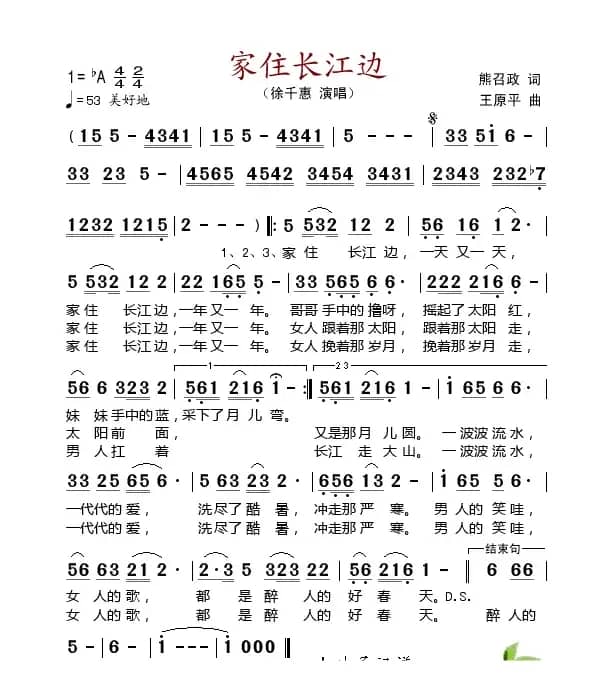 家住长江边
（徐千惠 演唱）
1=♭A 4/4 2/4
♩=53 美好地
熊召政 词
王原平 曲
( 15 5 - 4341 | 15 5 - 4341 | 15 5 - - | 33 51
33 23 5 - | 4565 4542 3454 3431 | 2343 0232♭7
1232 1215 | 2 - - - ) ‖: 5 532 12 2 | 56 16 1 2·
1、2、3、家 住 长江 边，一天 又一 天，
5 532 12 2 | 22 165 5 - | 33 565 6 6· | 222 216 6·
家 住 长江 边，一年 又一 年。 哥哥 手中的 撸呀， 摇起了 太阳 红，
家 住 长江 边，一年 又一 年。 女人 跟着那 太阳， 跟着那 太阳 走，
家 住 长江 边，一年 又一 年。 女人 挽着那 岁月， 挽着那 岁月 走，
1 2 3
56 6 323 2 | 561 216 1 - :‖ 561 216 1 - | 1 65 6 6·
妹 妹 手中的 蓝， 采下了 月 儿 弯。
太 阳 前 面， 又是那 月 儿 圆。 一 波波 流 水，
男 人 扛 着 长江 走 大山。 一 波波 流 水，
33 25 65 6· | 5 63 23 2· | 656 13 2 2· | 1 65 5 6·
一代 代的 爱， 洗 尽了 酷 暑， 冲走那 严 寒。 男 人的 笑 哇，
一代 代的 爱， 洗 尽了 酷 暑， 冲走那 严 寒。 男 人的 笑 哇，
结束句
56 63 21 2· | 2·3 55 323 22 | 56 216 1 - ‖ 6 66
女 人的 歌， 都 是 醉 人的 好 春 天。D.S.
女 人的 歌， 都 是 醉 人的 好 春 天。 醉 人的
5 - | 6 - | 1 - - - | 1 000 ‖